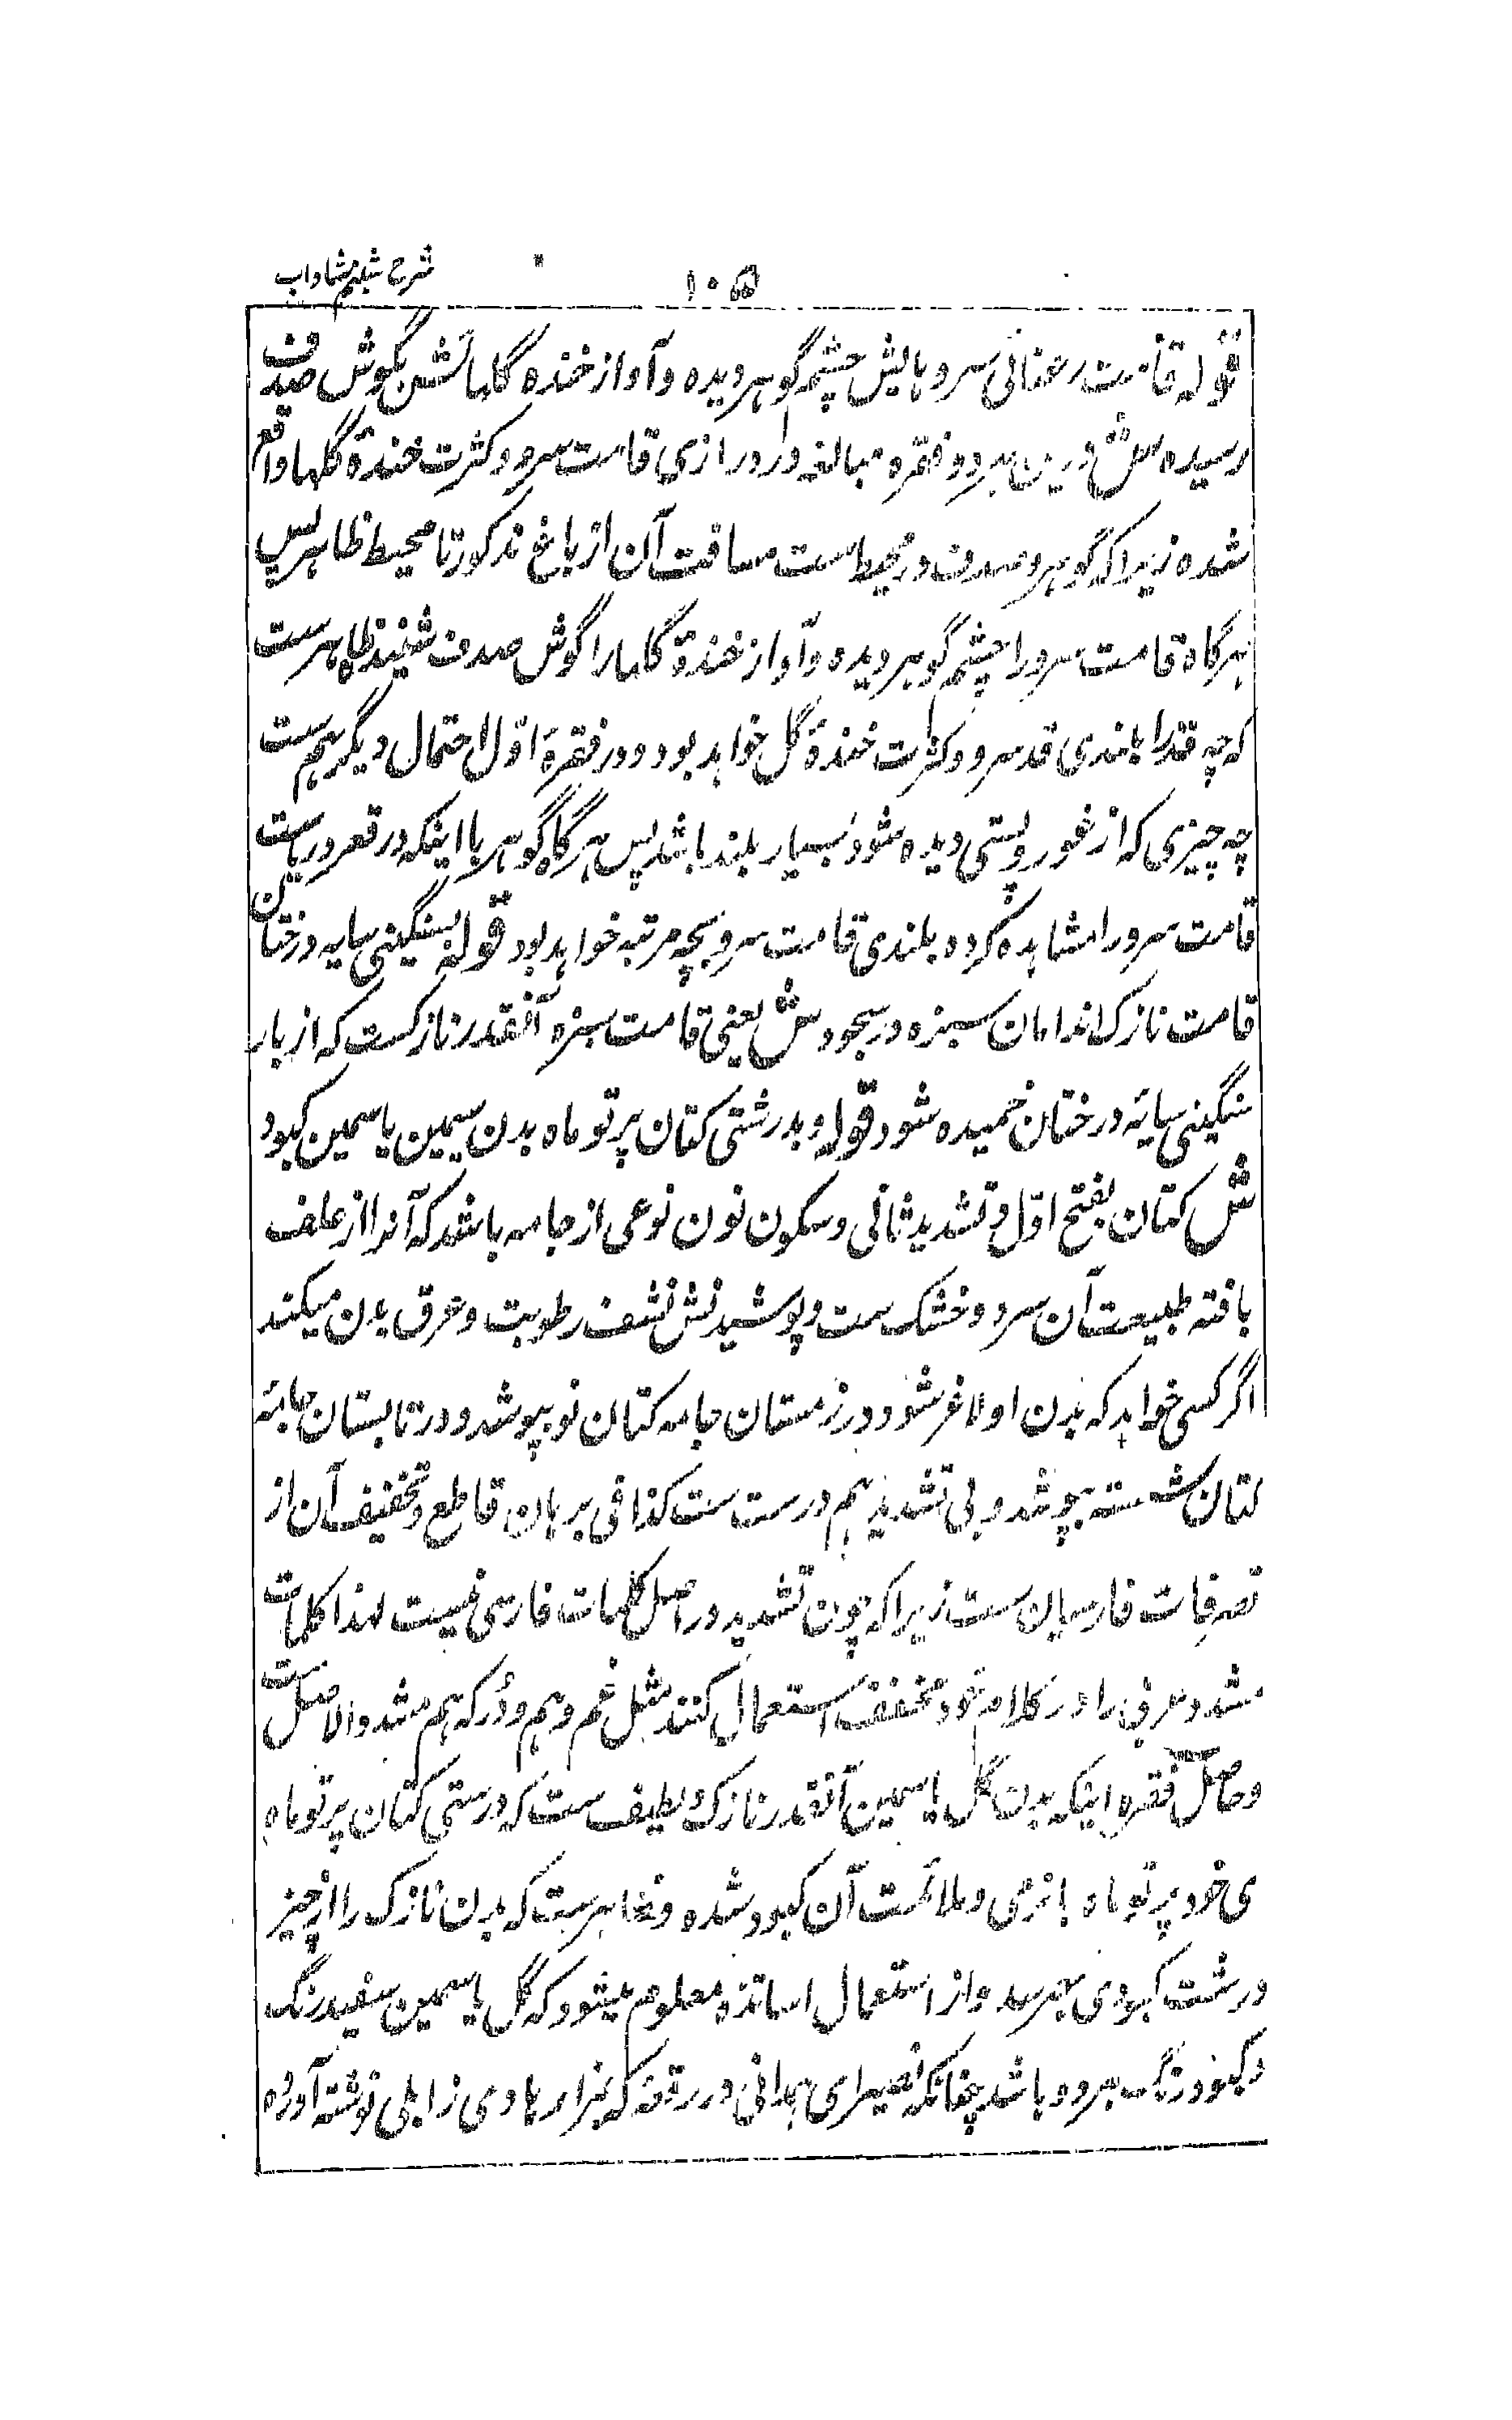 شرح شبنم شاداب
۱۰۵
قوله قامت رعنائی سروهایش چشم گوهر دیده و آواز خنده گلهایش بگوش صدف
رسیده ش درین هر دو فقره مبالغه در درازی قامت سرو و کثرت خندهٔ گلها واقع
شده زیراکه گوهر و صدف در محیط ست مسافت آن از باغ مذکور تا محیط ظاهر پس
هرگاه قامت سرو را چشم گوهر دیده و آواز خندهٔ گلها را گوش صدف شنیده ظاهرست
که چه قدر بلندی قد سرو و کثرت خندهٔ گل خواهد بود و در فقرهٔ اوّل احتمال دیگر هم ست
چه چیزی که از غور و پستی دیده شود بسیار بلند باشد پس هرگاه گوهر با اینکه در قعر دریاست
قامت سرو را مشاهده کرده بلندی قامت سرو بچه مرتبه خواهد بود قوله بسنگینی سایه درختان
قامت نازک اندامان سبزه در سجود ش یعنی قامت سبزه آنقدر نازکست که از بار
سنگینی سایهٔ درختان خمیده شود قوله و بدرشتی کتان پرتو ماه بدن سیمین یاسمین کبود
ش کتان بفتح اوّل و تشدید ثانی و سکون نون نوعی از جامه باشد که آنرا از علف
بافته طبیعت آن سرد و خشک ست و پوشیدنش نشف رطوبت و عرق بدن میکند
اگر کسی خواهد که بدن او لاغر شود در زمستان جامه کتان نو بپوشد و در تابستان جامهٔ
کتان شسته بپوشد و بی تشدید هم درست ست کذا فی برهان قاطع و تخفیف آن از
تصرفات فارسیان ست زیراکه چون تشدید در اصل کلمات فارسی نیست لهذا کلمات
مشدد عربی را در کلام خود مخفف استعمال کنند مثل غم و هم و دُر که هم مشدد الاصل ست
و حاصل فقره اینکه بدن گل یاسمین آنقدر نازک و لطیف ست که درشتی کتان پرتو ماه
ی خورد پرتو ماه با نرمی و ملائمت آن کبود شده و ظاهرست که بدن نازک را از چیز
درشت کبودی میرسد و از استعمال اساتذه معلوم میشود که گل یاسمین سفید رنگ
و کبود رنگ هر دو باشد چنانکه نصیرای همدانی در رقعه که بنزار یادی زابلی نوشته آورده